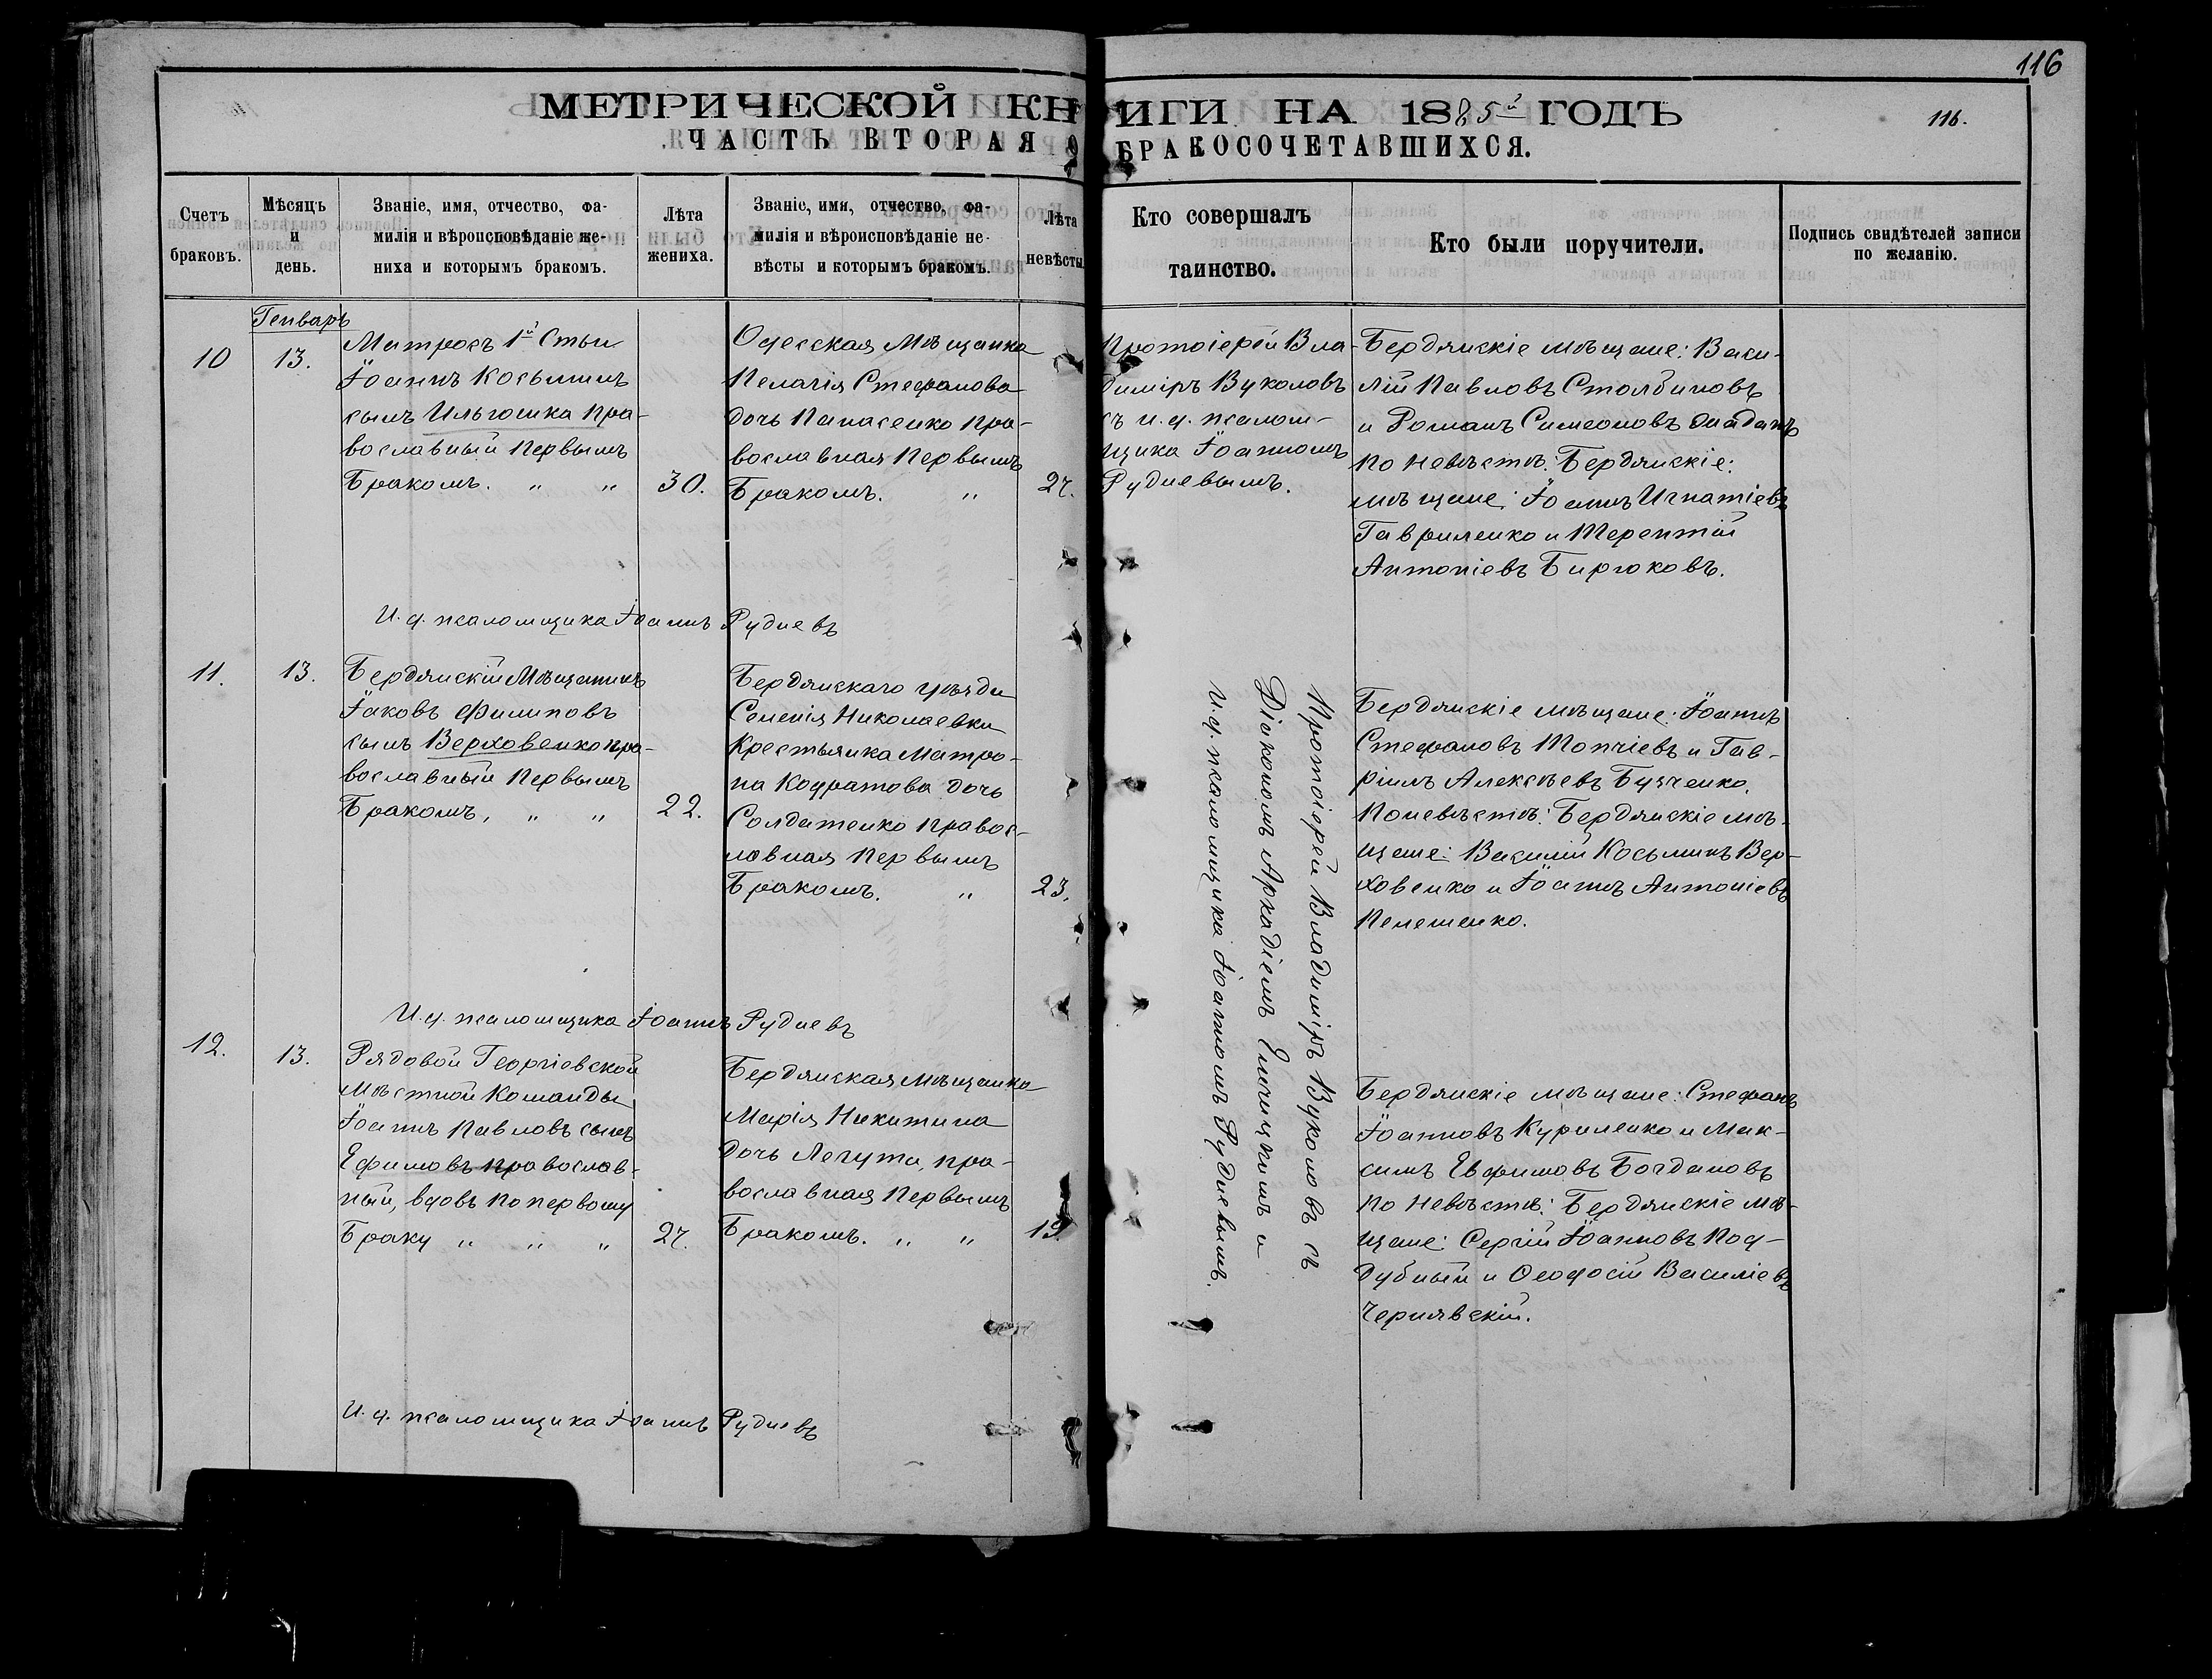 116
МЕТРИЧЕСКОЙ КНИГИ НА 1885й ГОДЪ
116.
ЧАСТЬ ВТОРАЯ О БРАКОСОЧЕТАВШИХСЯ.
Счетъ
браковъ.
Мѣсяцъ
и
день.
Званіе, имя, отчество, фа-
милія и вѣроисповѣданіе же-
ниха и которымъ бракомъ.
Лѣта
жениха.
Званіе, имя, отчество, фа-
милія и вѣроисповѣданіе не-
вѣсты и которымъ бракомъ.
Лѣта
невѣсты.
Кто совершалъ
таинство.
Кто были поручители.
Подпись свидѣтелей записи
по желанію.
Генварь
10
13.
Матросъ 1й Стьи
Іоаннъ Косьминъ
сынъ Ильюшка пра-
вославный первымъ
бракомъ. " "
30.
Одесская мѣщанка
Пелагія Стефанова
дочь Панасенко пра-
вославная первымъ
бракомъ. "
27.
Протоіерей Вла-
димиръ Вуколовъ
съ и. д. псалом-
щика Іоанномъ
Рудневымъ.
Бердянскіе мѣщане: Васи-
лій Павловъ Столбиновъ
и Романъ Симеоновъ
по невѣстѣ: Бердянскіе:
мѣщане: Іоаннъ Игнатіевъ
Гавриленко и Терентій
Антоніевъ Бирюковъ.
И. д. псаломщика Іоаннъ Рудневъ
11.
13.
Бердянскій Мѣщанинъ
Іаковъ Филиповъ
сынъ Верховенко пра-
вославный первымъ
бракомъ, " "
22.
Бердянскаго уѣзда
Селенія Николаевки
крестьянка Матро-
на Кодратова дочь
Солдатенко правос-
лавная первымъ
бракомъ. "
23.
Протоіерей Владимиръ Вуколовъ съ
Діакономъ Аркадіемъ и
и. д. псаломщика Іоанномъ Рудневымъ.
Бердянскіе мѣщане: Іоаннъ
Стефановъ Топчіевъ и Гав-
ріилъ Алексѣевъ Бузченко.
По невѣстѣ: Бердянскіе мѣ-
щане: Василій Косьминъ Вер-
ховенко и Іоаннъ Антоніевъ
Пелешенко.
И. д. псаломщика Іоаннъ Рудневъ
12.
13.
Рядовой Георгіевской
мѣстной Команды
Іоаннъ Павловъ сынъ
Ефимовъ православ-
ный, вдовъ по первому
браку " " "
27.
Бердянская мѣщанка
Марія Никитина
дочь Легута, пра-
вославная первымъ
бракомъ. " "
19.
Бердянскіе мѣщане: Стефанъ
Іоанновъ Куриленко и Мак-
симъ Евфимовъ Богдановъ
по невѣстѣ: Бердянскіе мѣ-
щане: Сергій Іоанновъ Под-
дубный и Ѳеодосій Василіевъ
Чернявскій.
И. д. псаломщика Іоаннъ Рудневъ